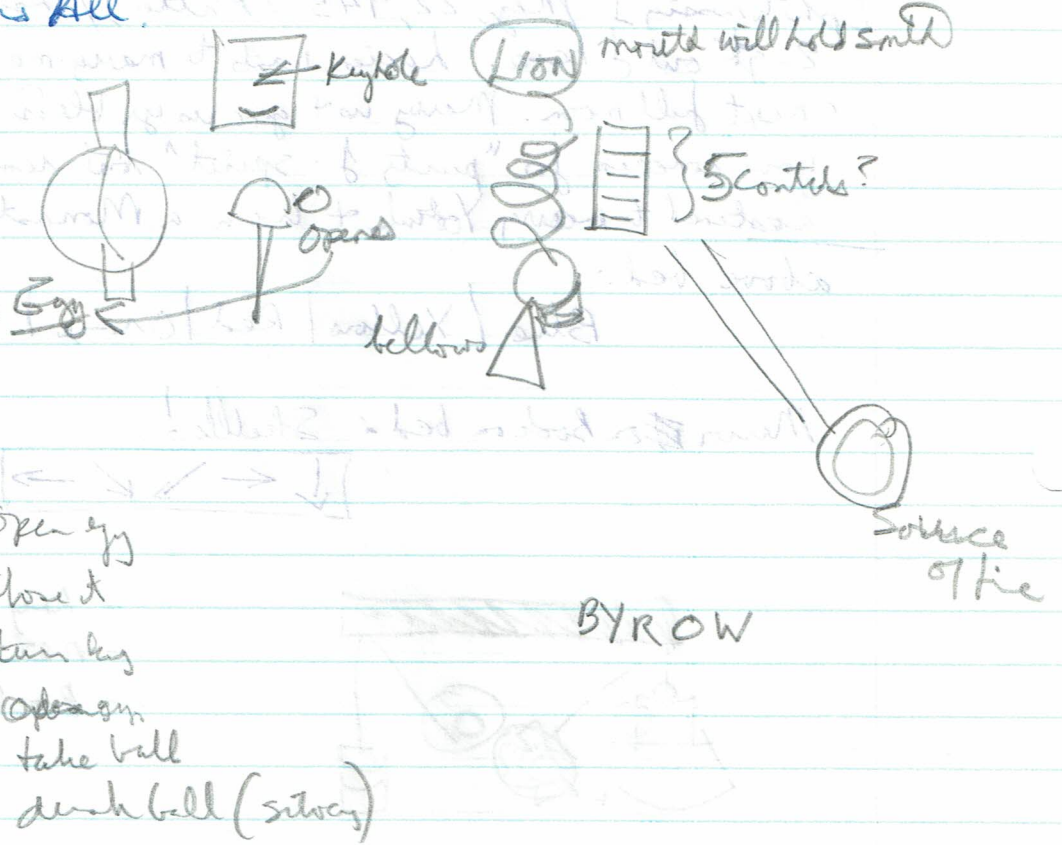 is All.
Keyhole
LION
mouth will hold smth
5 contrls?
opens
Egg
bellows
Source
of fire
open egg
close it
turn key
BYROW
open
take ball
ball (